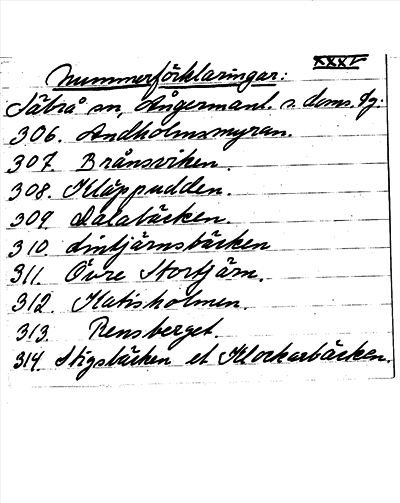 XXXV
Nummerförklaringar:
Säbrå sn, Ångermanl. s. doms. fg:
306. Andholmsmyran.
307. Brånsviken.
308. Kläppudden.
309. Dalabäcken.
310. Lintjärnsbäcken
311. Övre Stortjärn.
312. Katisholmen.
313. Rensberget.
314. Stigsbäcken el. Klockarbäcken.